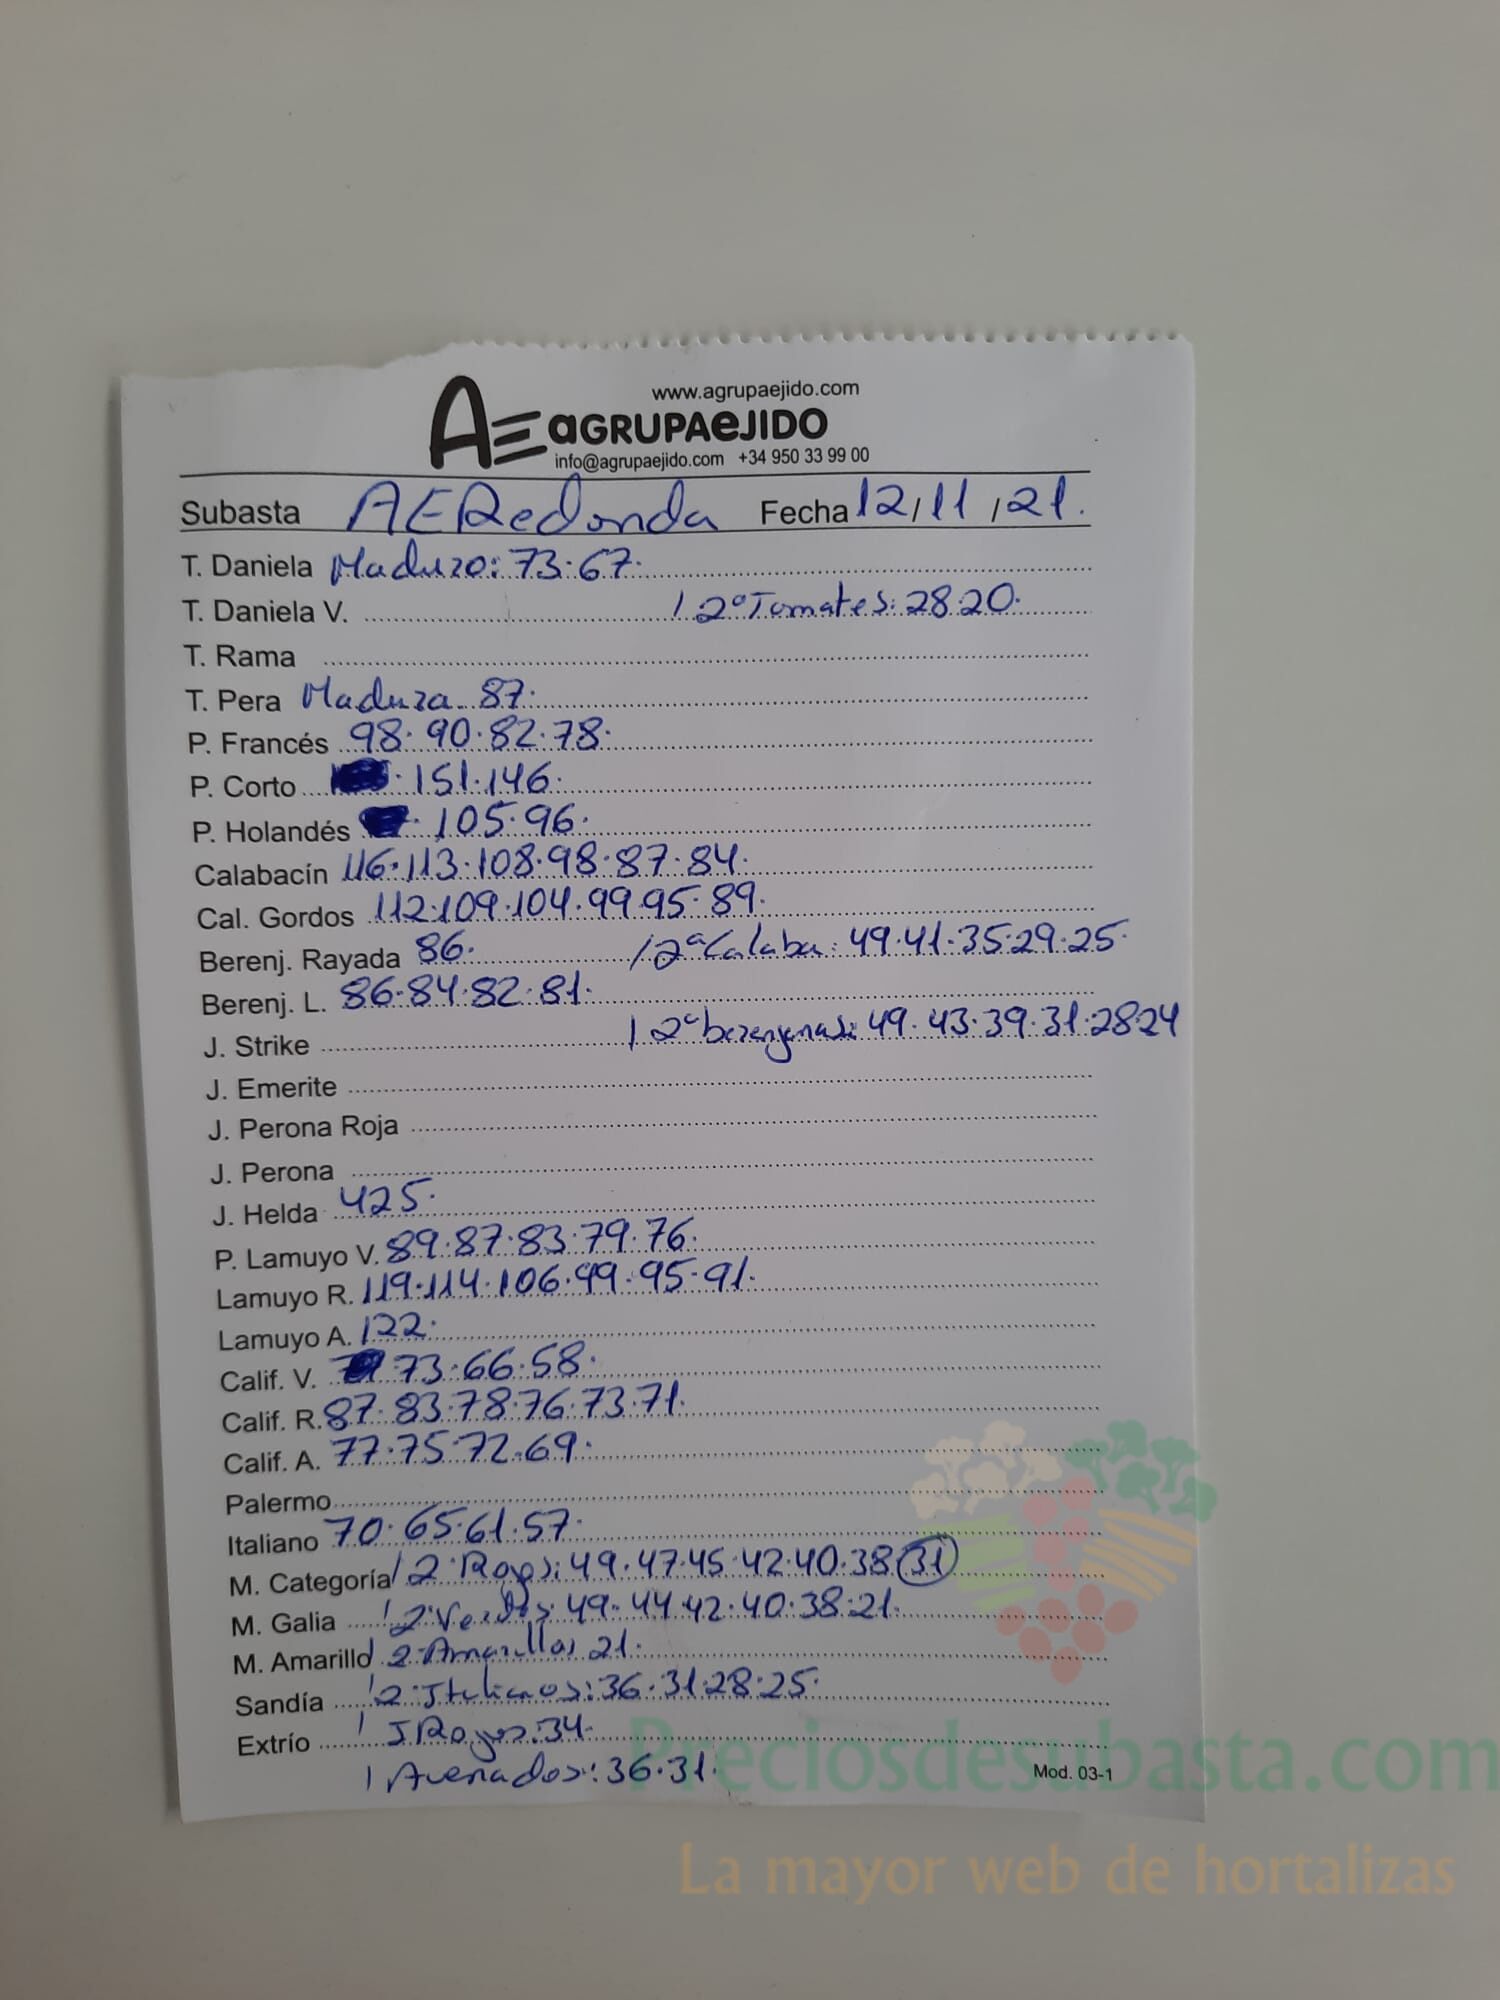 www.agrupaejido.com
AE aGRUPAeJIDO
info@agrupaejido.com +34 950 33 99 00
Subasta AERedonda Fecha 12/11/21.
T. Daniela Maduro: 73·67·
T. Daniela V. / 2ª Tomates: 28·20·
T. Rama
T. Pera Madura 87·
P. Francés 98·90·82·78·
P. Corto · 151·146·
P. Holandés · 105·96·
Calabacín 116·113·108·98·87·84·
Cal. Gordos 112·109·104·99·95·89·
Berenj. Rayada 86· / 2ª Calaba: 49·41·35·29·25·
Berenj. L. 86·84·82·81·
J. Strike / 2ª berenjenas: 49·43·39·31·28·24
J. Emerite
J. Perona Roja
J. Perona
J. Helda 425·
P. Lamuyo V. 89·87·83·79·76·
Lamuyo R. 119·114·106·99·95·91·
Lamuyo A. 122·
Calif. V. 73·66·58·
Calif. R. 87·83·78·76·73·71·
Calif. A. 77·75·72·69·
Palermo
Italiano 70·65·61·57·
M. Categoría / 2ª Rojos: 49·47·45·42·40·38 (31)
M. Galia / 2ª Verdes: 49·44·42·40·38·21·
M. Amarillo / 2ª Amarillos 21·
Sandía / 2ª Italianos: 36·31·28·25·
Extrío / J Rojos: 34·
/ Asenados: 36·31·
Mod. 03-1
Preciosdesubasta.com
La mayor web de hortalizas